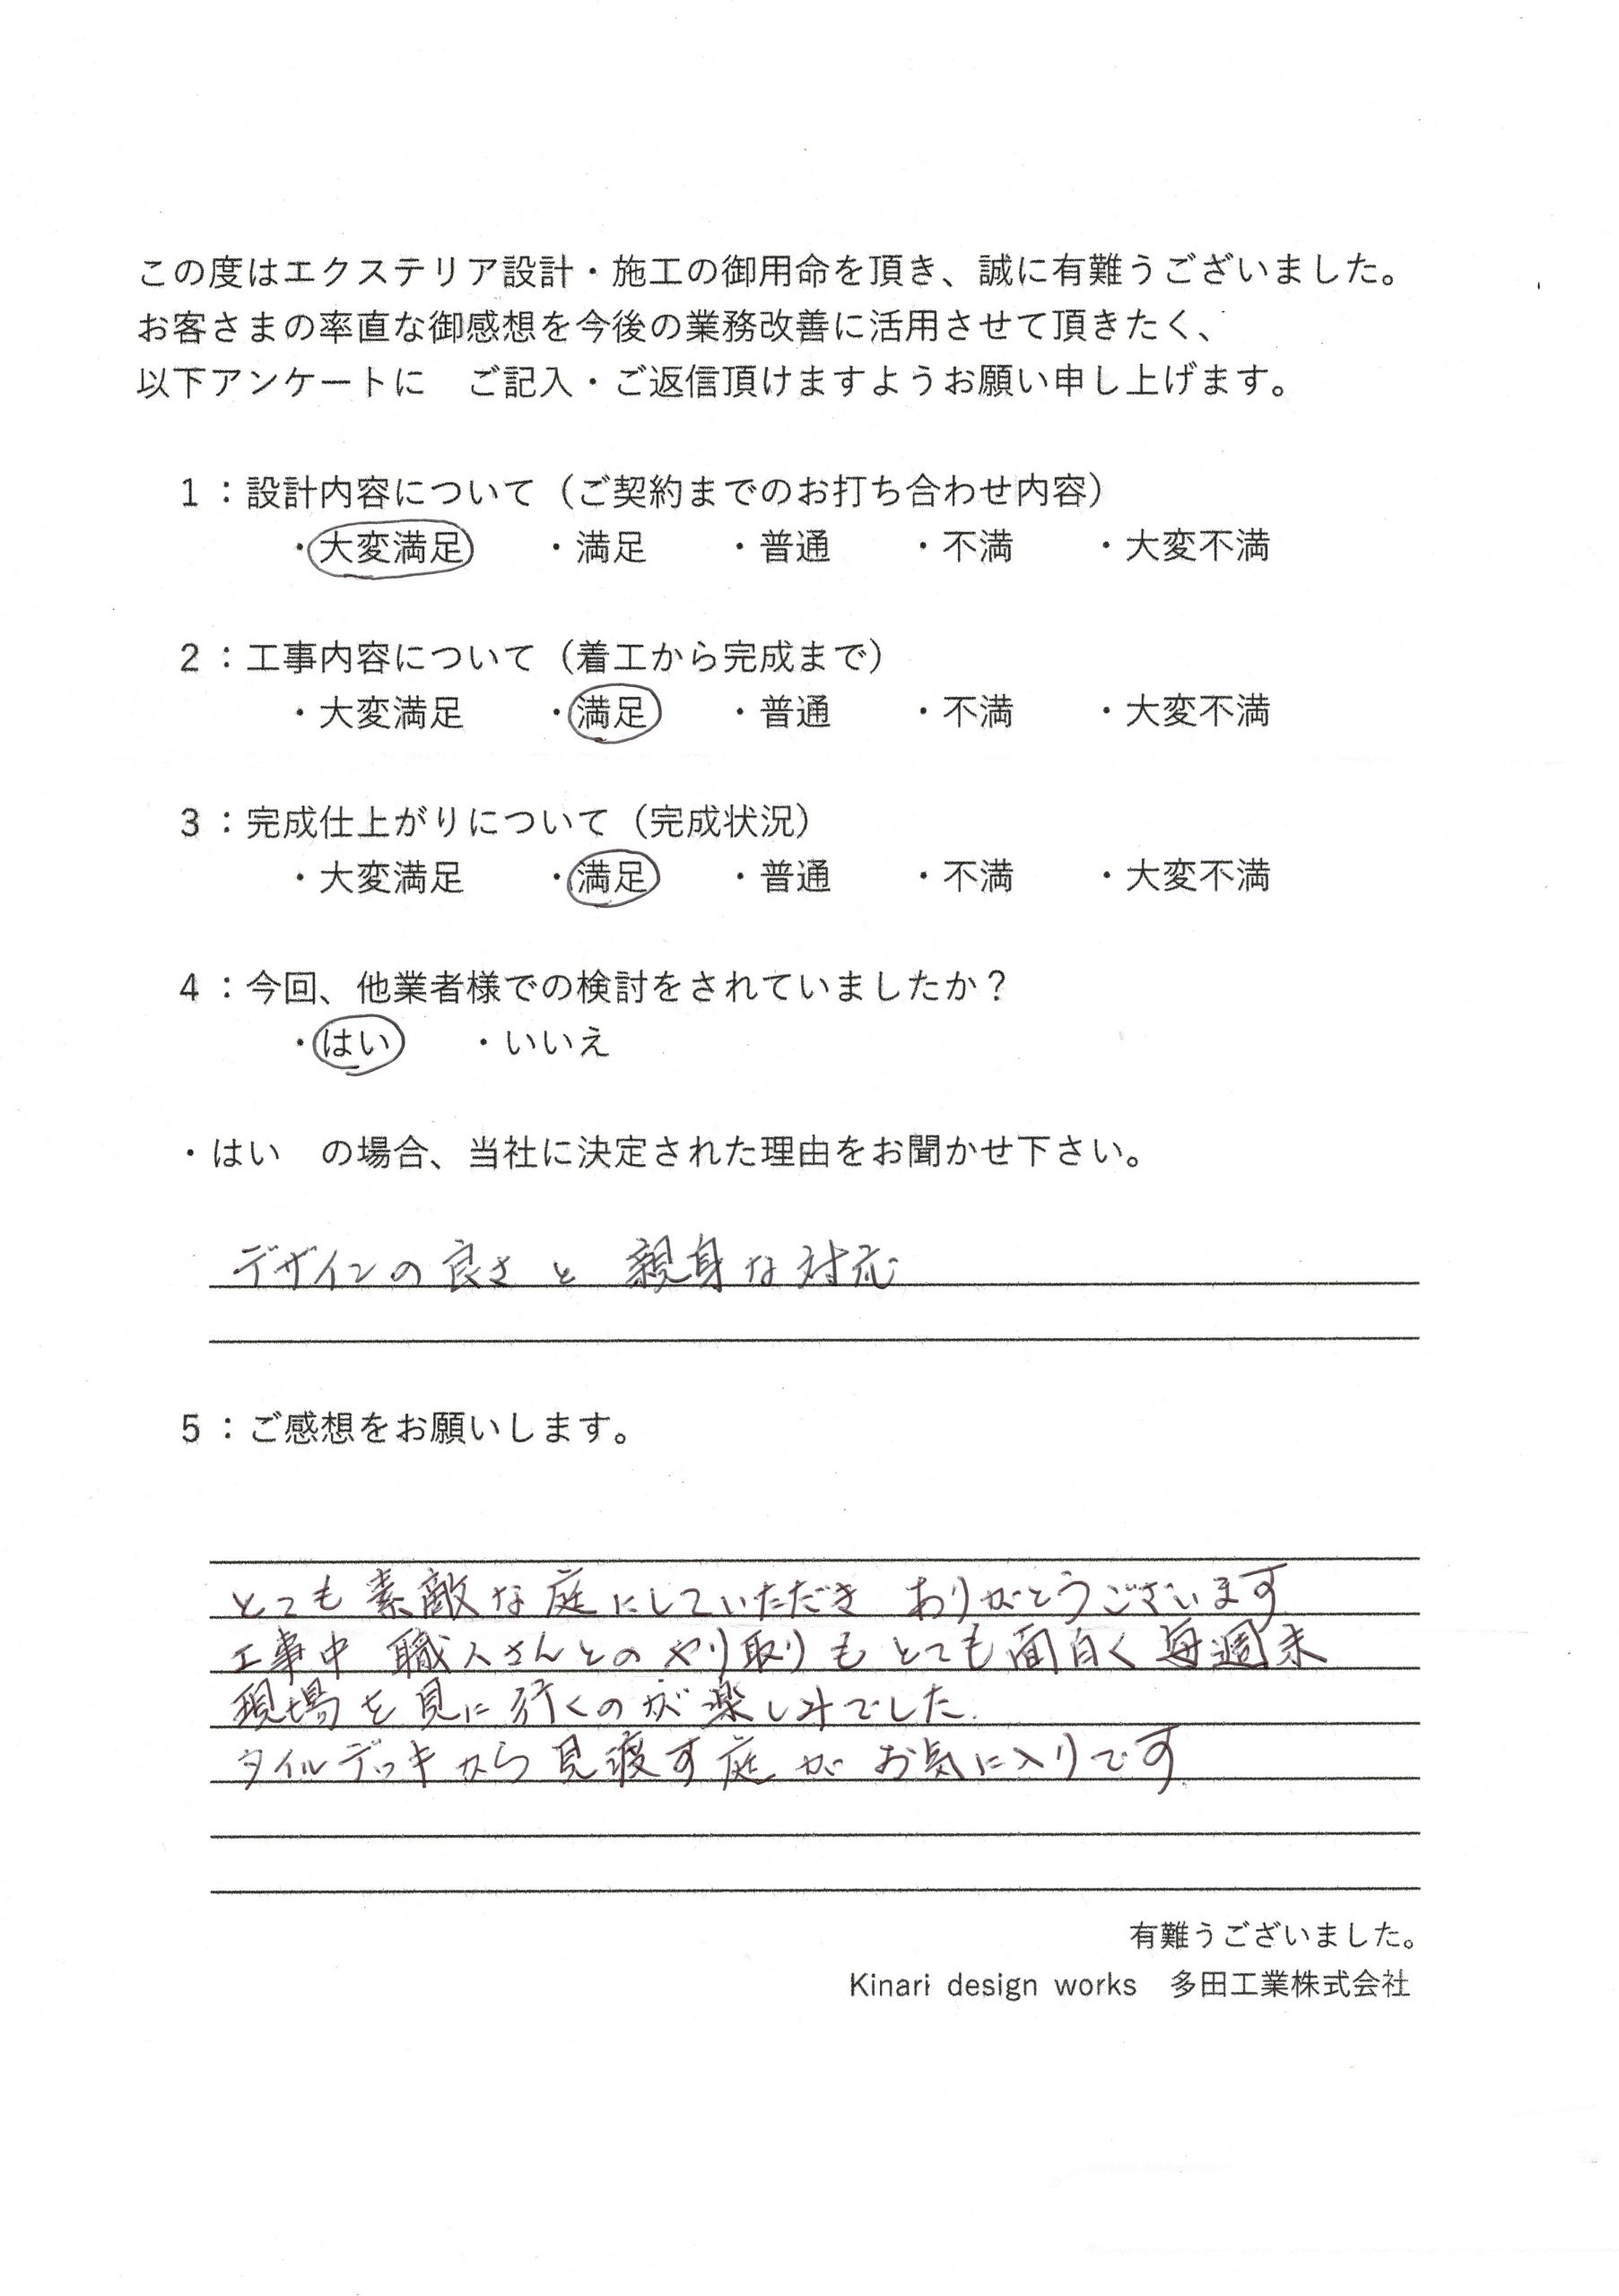 この度はエクステリア設計・施工の御用命を頂き、誠に有難うございました。
お客さまの率直な御感想を今後の業務改善に活用させて頂きたく、
以下アンケートに　ご記入・ご返信頂けますようお願い申し上げます。
1：設計内容について（ご契約までのお打ち合わせ内容）
・大変満足　・満足　・普通　・不満　・大変不満
2：工事内容について（着工から完成まで）
・大変満足　・満足　・普通　・不満　・大変不満
3：完成仕上がりについて（完成状況）
・大変満足　・満足　・普通　・不満　・大変不満
4：今回、他業者様での検討をされていましたか？
・はい　・いいえ
・はい　の場合、当社に決定された理由をお聞かせ下さい。
デザインの良さと親身な対応
5：ご感想をお願いします。
とても素敵な庭にしていただき　ありがとうございます
工事中　職人さんとのやり取りもとても面白く毎週末
現場を見に行くのが楽しみでした.
タイルデッキから見渡す庭がお気に入りです.
有難うございました。
Kinari design works　多田工業株式会社